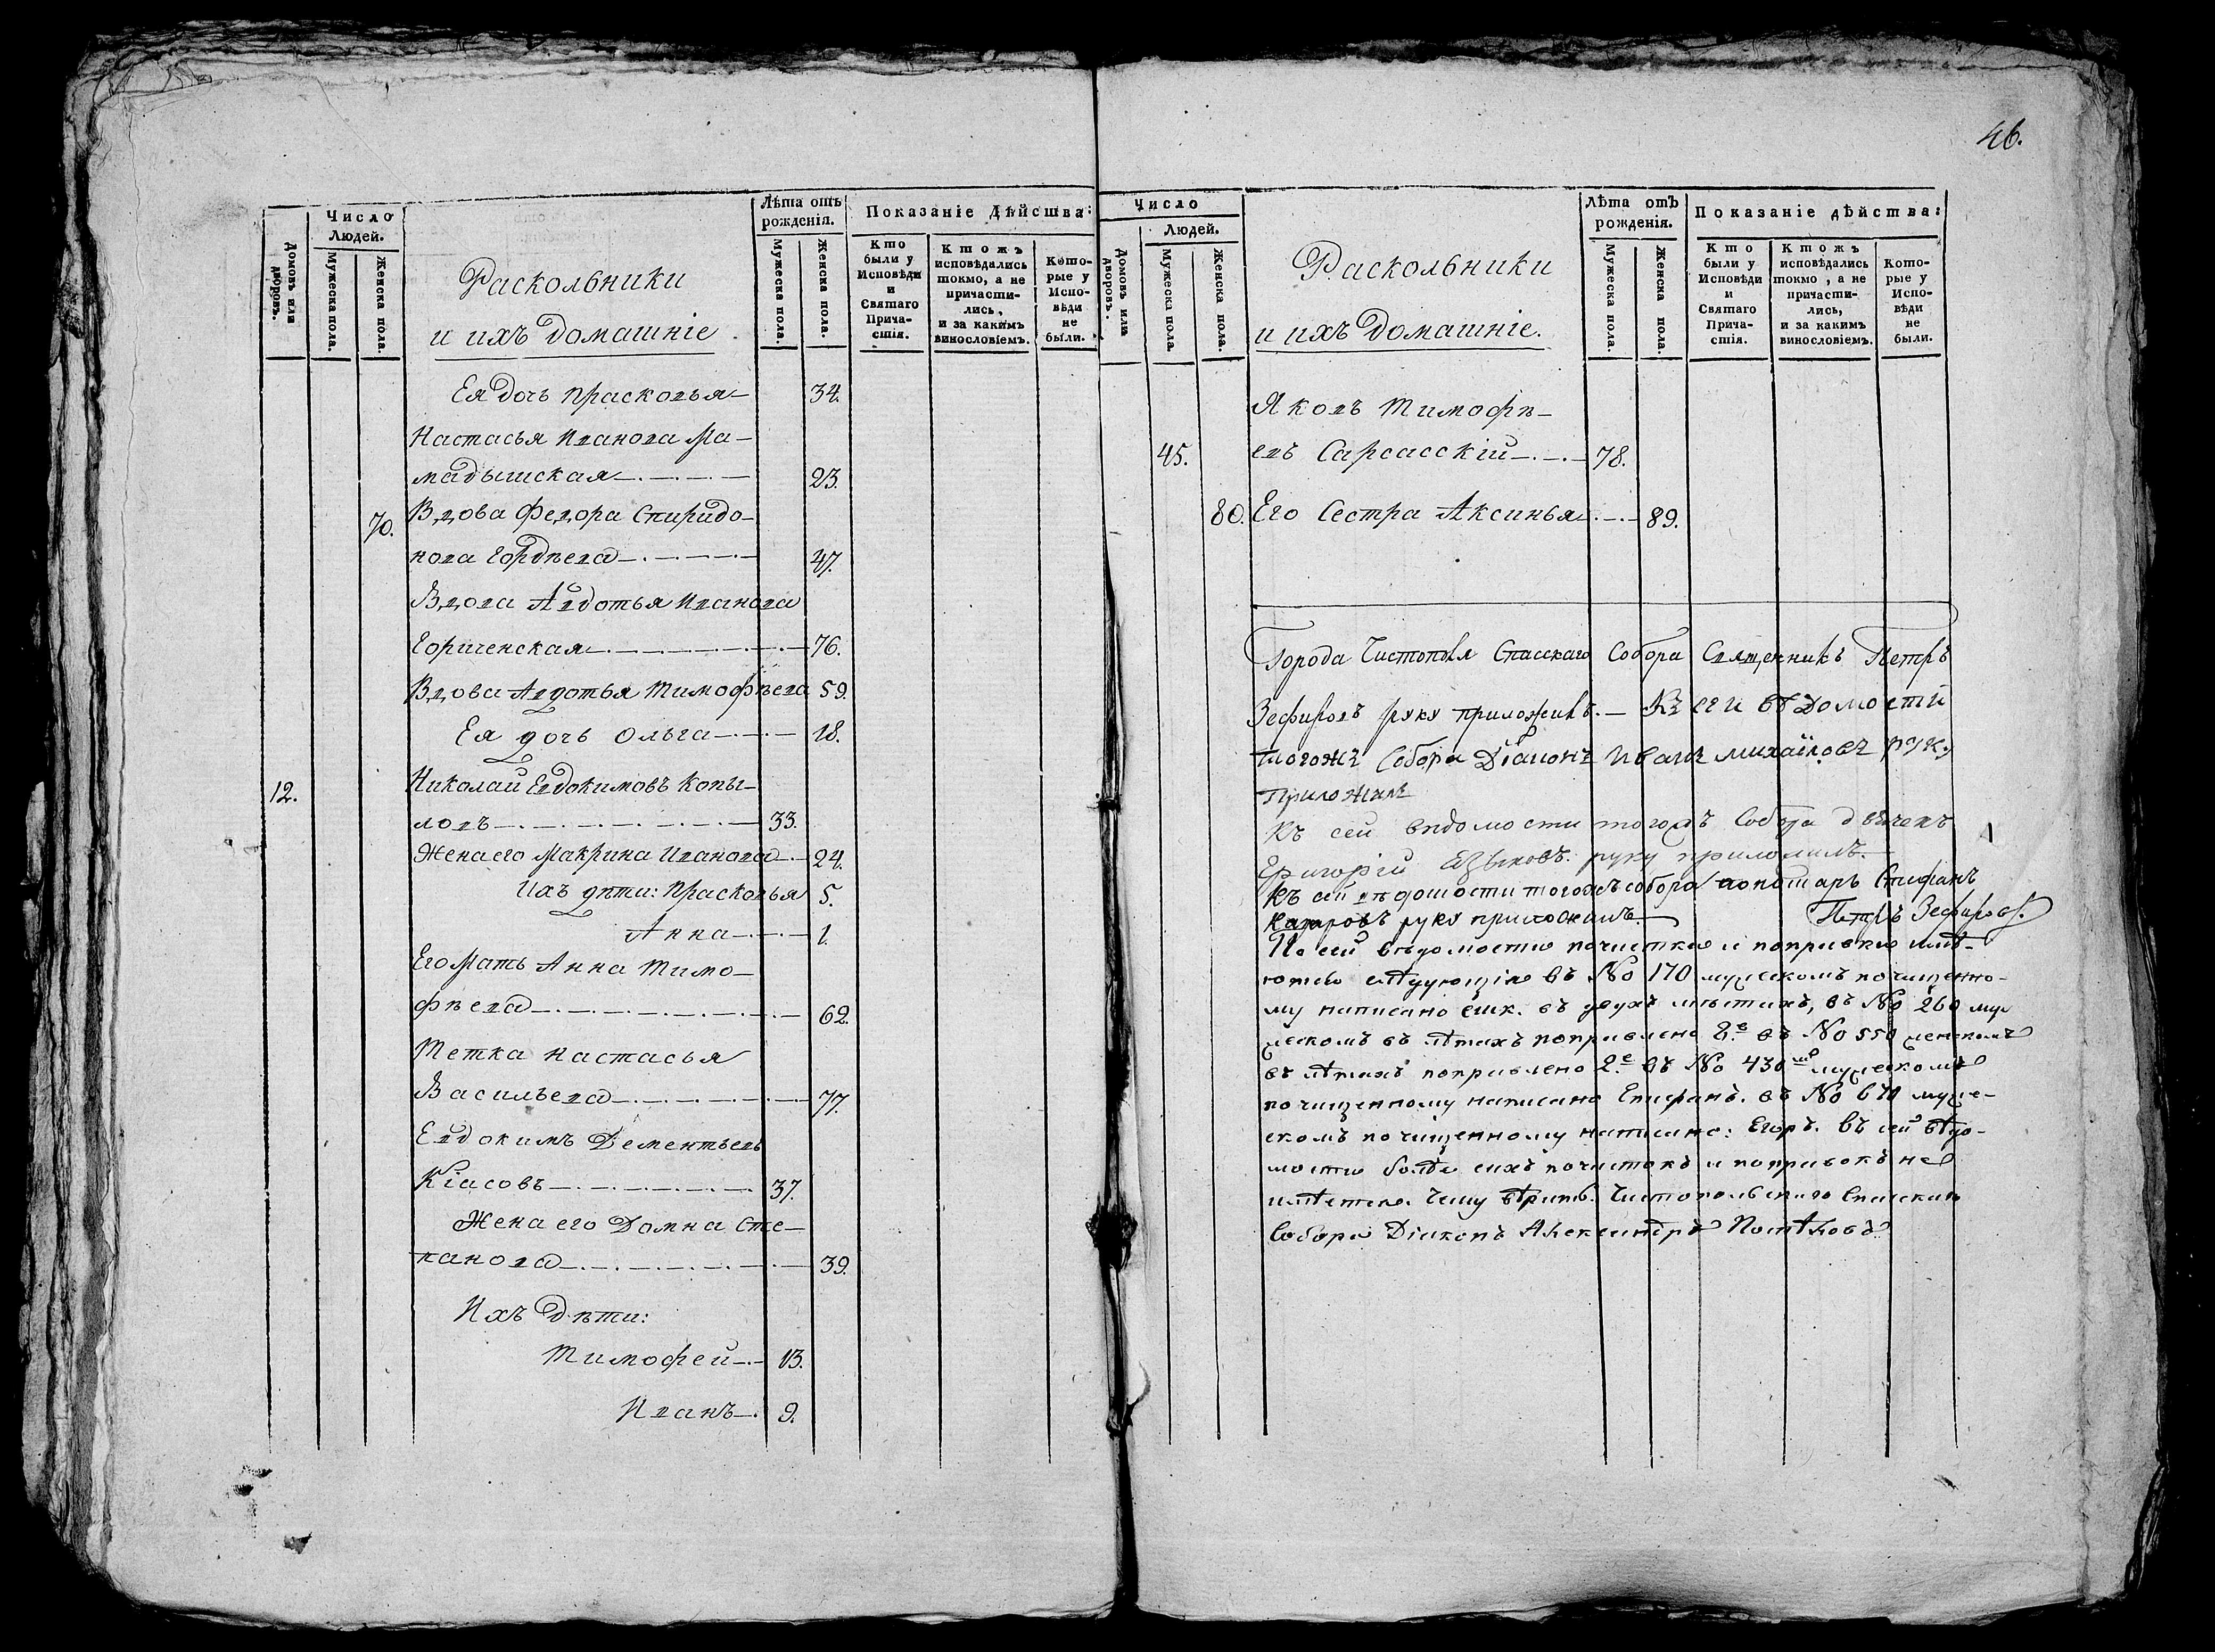 46.
Число
Людей.
Домовъ или дворовъ.
Мужеска пола.
Женска пола.
Раскольники
и ихъ домашніе
Лѣта отъ рожденія.
Мужеска пола.
Женска пола.
Показаніе Дѣйства:
Кто были у Исповѣди и Святаго Прича-стія.
Ктожъ исповѣдались токмо, а не причасти-лись, и за какимъ винословіемъ.
Кото-рые у Испо-вѣди не были.
Ея дочь Прасковья 34.
Настасья Иванова Ма-
мадышская 23.
70. Вдова Федора Спиридо-
нова Гордѣева 47.
Вдова Авдотья Иванова
Гориченская 76.
Вдова Авдотья Тимофѣева 59.
Ея дочь Ольга 18.
12. Николай Евдокимовъ Копы-
ловъ 33.
Жена его Макрина Иванова 24.
Ихъ дѣти: Прасковья 5.
Анна 1.
Его Мать Анна Тимо-
фѣева 62.
Тетка Настасья
Васильева 77.
Евдокимъ Дементьевъ
Кіасовъ 37.
Жена его Домна Сте-
панова 39.
Ихъ дѣти:
Тимофей 13.
Иванъ 9.
Число
Людей.
Домовъ или дворовъ.
Мужеска пола.
Женска пола.
Раскольники
и ихъ домашніе.
Лѣта отъ рожденія.
Мужеска пола.
Женска пола.
Показаніе дѣйства:
Кто были у Исповѣди и Святаго Прича-стія.
Ктожъ исповѣдались токмо, а не причасти-лись, и за какимъ винословіемъ.
Кото-рые у Испо-вѣди не были.
Яковъ Тимофѣ-
45. евъ Сарсасскій 78.
80. Его Сестра Аксинья 89.
Города Чистополя Спасскаго Собора Священникъ Петръ
Зефировъ руку приложилъ. — Къ сеи вѣдомости
тогожъ Собора Діаконъ Иванъ Михайловъ руку
приложилъ
Къ сей ведомости тогожъ Собора дьячекъ
Григорій Языковъ руку приложилъ.
Къ сей вѣдомости тогожъ собора пономарь Стефанъ
руку приложилъ Петръ Зефировъ.
По сей вѣдомости почистки и поправки имѣ-
ютсь слѣдующія въ No 170 мужескомъ почищенно-
му написано въ двухъ мѣстахъ, въ No 260 му-
жескомъ въ лѣтахъ поправлено 8.е въ No 550 женскомъ
въ лѣтахъ поправлено 2.е въ No 430 мужескомъ
почищенному написано Епифанъ. въ No 670 муже-
скомъ почищенному написано: Егоръ. Въ сей вѣдо-
мости болѣе сихъ почистокъ и поправокъ не
имѣется. Чему вѣрить. Чистопольскаго Спасскаго
Собора Діаконъ Александръ